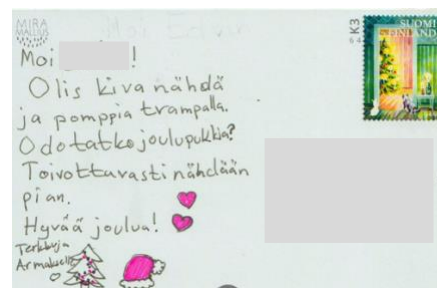 MIRA
MALLIUS
Moi !
Olis kiva nähdä
ja pomppia trampalla.
Odotatko joulupukkia?
Toivottavasti nähdään
pian.
Hyvää joulua!
Terkkuja
K3
SUOMI
FINLAND